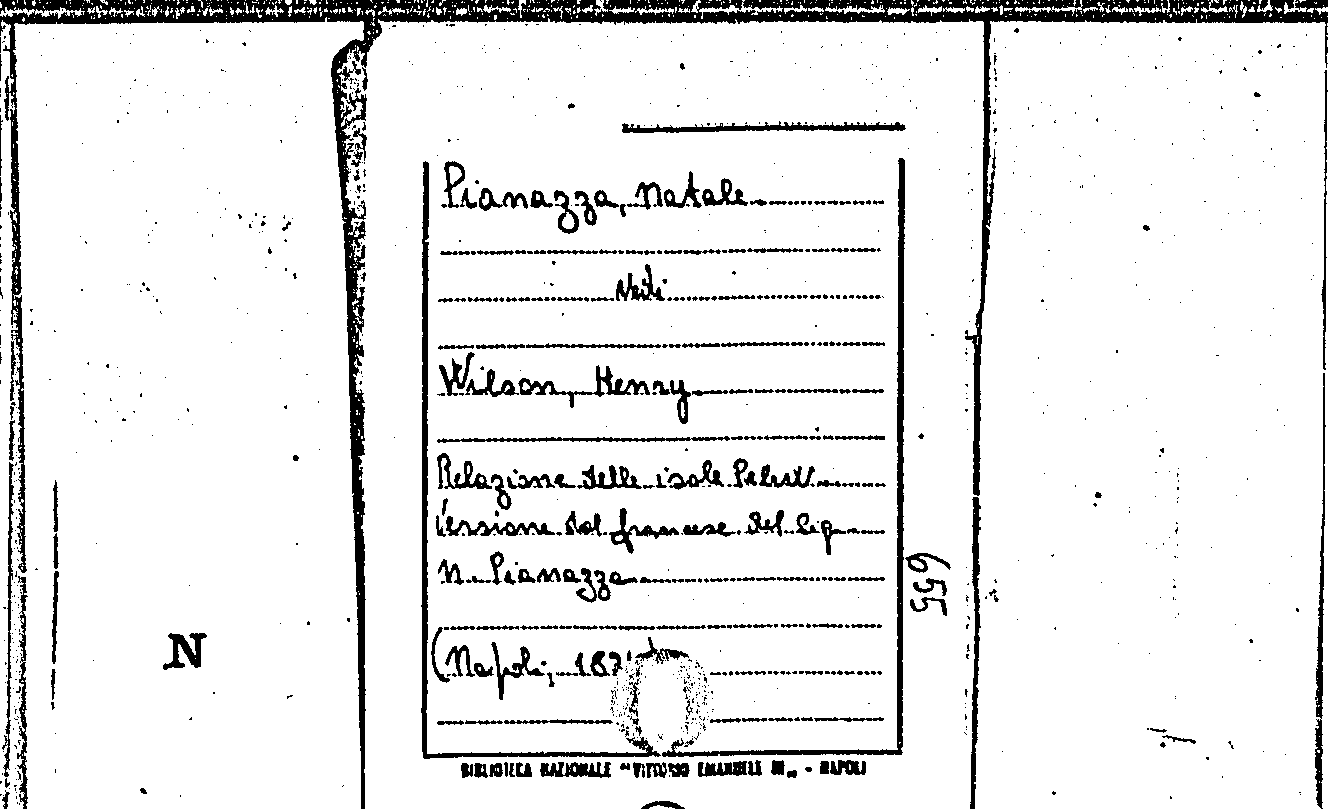 Pianazza, Natale
Vedi
Wilson, Henry
Relazione delle isole Pelew
Versione dal francese del Sig.
N. Pianazza
(Napoli, 182
655
N
BIBLIOTECA NAZIONALE "VITTORIO EMANUELE III„ - NAPOLI